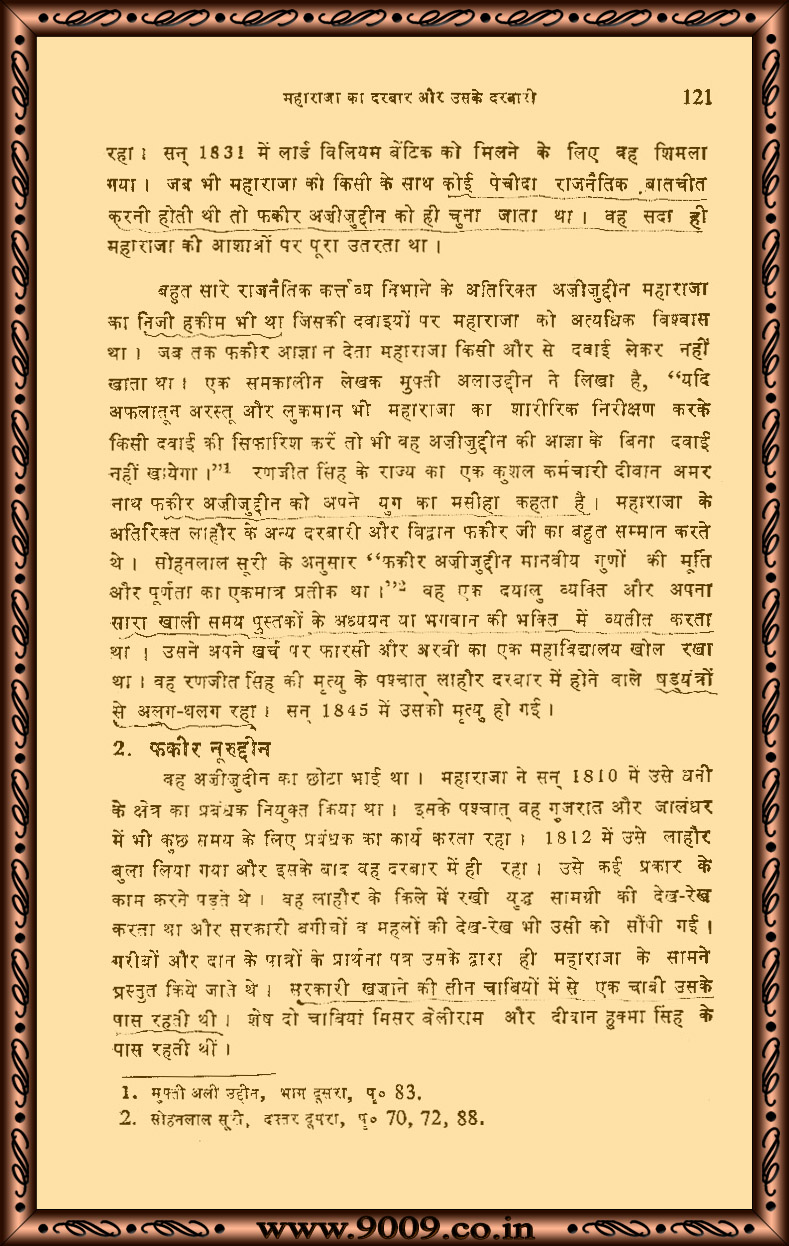 महाराजा का दरबार और उसके दरबारी 121
रहा। सन् 1831 में लार्ड विलियम बेंटिक को मिलने के लिए वह शिमला
गया। जब भी महाराजा को किसी के साथ कोई पेचीदा राजनैतिक बातचीत
करनी होती थी तो फकीर अज़ीजुद्दीन को ही चुना जाता था। वह सदा ही
महाराजा की आशाओं पर पूरा उतरता था।
बहुत सारे राजनैतिक कर्त्तव्य निभाने के अतिरिक्त अज़ीजुद्दीन महाराजा
का निजी हकीम भी था जिसकी दवाइयों पर महाराजा को अत्यधिक विश्वास
था। जब तक फकीर आज्ञा न देता महाराजा किसी और से दवाई लेकर नहीं
खाता था। एक समकालीन लेखक मुफ्ती अलाउद्दीन ने लिखा है, “यदि
अफलातून अरस्तू और लुकमान भी महाराजा का शारीरिक निरीक्षण करके
किसी दवाई की सिफारिश करें तो भी वह अज़ीजुद्दीन की आज्ञा के बिना दवाई
नहीं खायेगा।”1 रणजीत सिंह के राज्य का एक कुशल कर्मचारी दीवान अमर
नाथ फकीर अज़ीजुद्दीन को अपने युग का मसीहा कहता है। महाराजा के
अतिरिक्त लाहौर के अन्य दरबारी और विद्वान फकीर जी का बहुत सम्मान करते
थे। सोहनलाल सूरी के अनुसार “फकीर अज़ीजुद्दीन मानवीय गुणों की मूर्ति
और पूर्णता का एकमात्र प्रतीक था।”2 वह एक दयालु व्यक्ति और अपना
सारा खाली समय पुस्तकों के अध्ययन या भगवान की भक्ति में व्यतीत करता
था। उसने अपने खर्च पर फारसी और अरबी का एक महाविद्यालय खोल रखा
था। वह रणजीत सिंह की मृत्यु के पश्चात् लाहौर दरबार में होने वाले षड्यंत्रों
से अलग-थलग रहा। सन् 1845 में उसकी मृत्यु हो गई।
2. फकीर नूरुद्दीन
वह अज़ीजुदीन का छोटा भाई था। महाराजा ने सन् 1810 में उसे धनी
के क्षेत्र का प्रबंधक नियुक्त किया था। इसके पश्चात् वह गुजरात और जालंधर
में भी कुछ समय के लिए प्रबंधक का कार्य करता रहा। 1812 में उसे लाहौर
बुला लिया गया और इसके बाद वह दरबार में ही रहा। उसे कई प्रकार के
काम करने पड़ते थे। वह लाहौर के किले में रखी युद्ध सामग्री की देख-रेख
करता था और सरकारी बगीचों व महलों की देख-रेख भी उसी को सौंपी गई।
गरीबों और दान के पात्रों के प्रार्थना पत्र उसके द्वारा ही महाराजा के सामने
प्रस्तुत किये जाते थे। सरकारी खज़ाने की तीन चाबियों में से एक चाबी उसके
पास रहती थी। शेष दो चाबियां मिसर बेलीराम और दीवान हुक्मा सिंह के
पास रहती थीं।
1. मुफ्ती अली उद्दीन, भाग दूसरा, पृ० 83.
2. सोहनलाल सूरी, दफ्तर दूसरा, पृ० 70, 72, 88.
www.9009.co.in